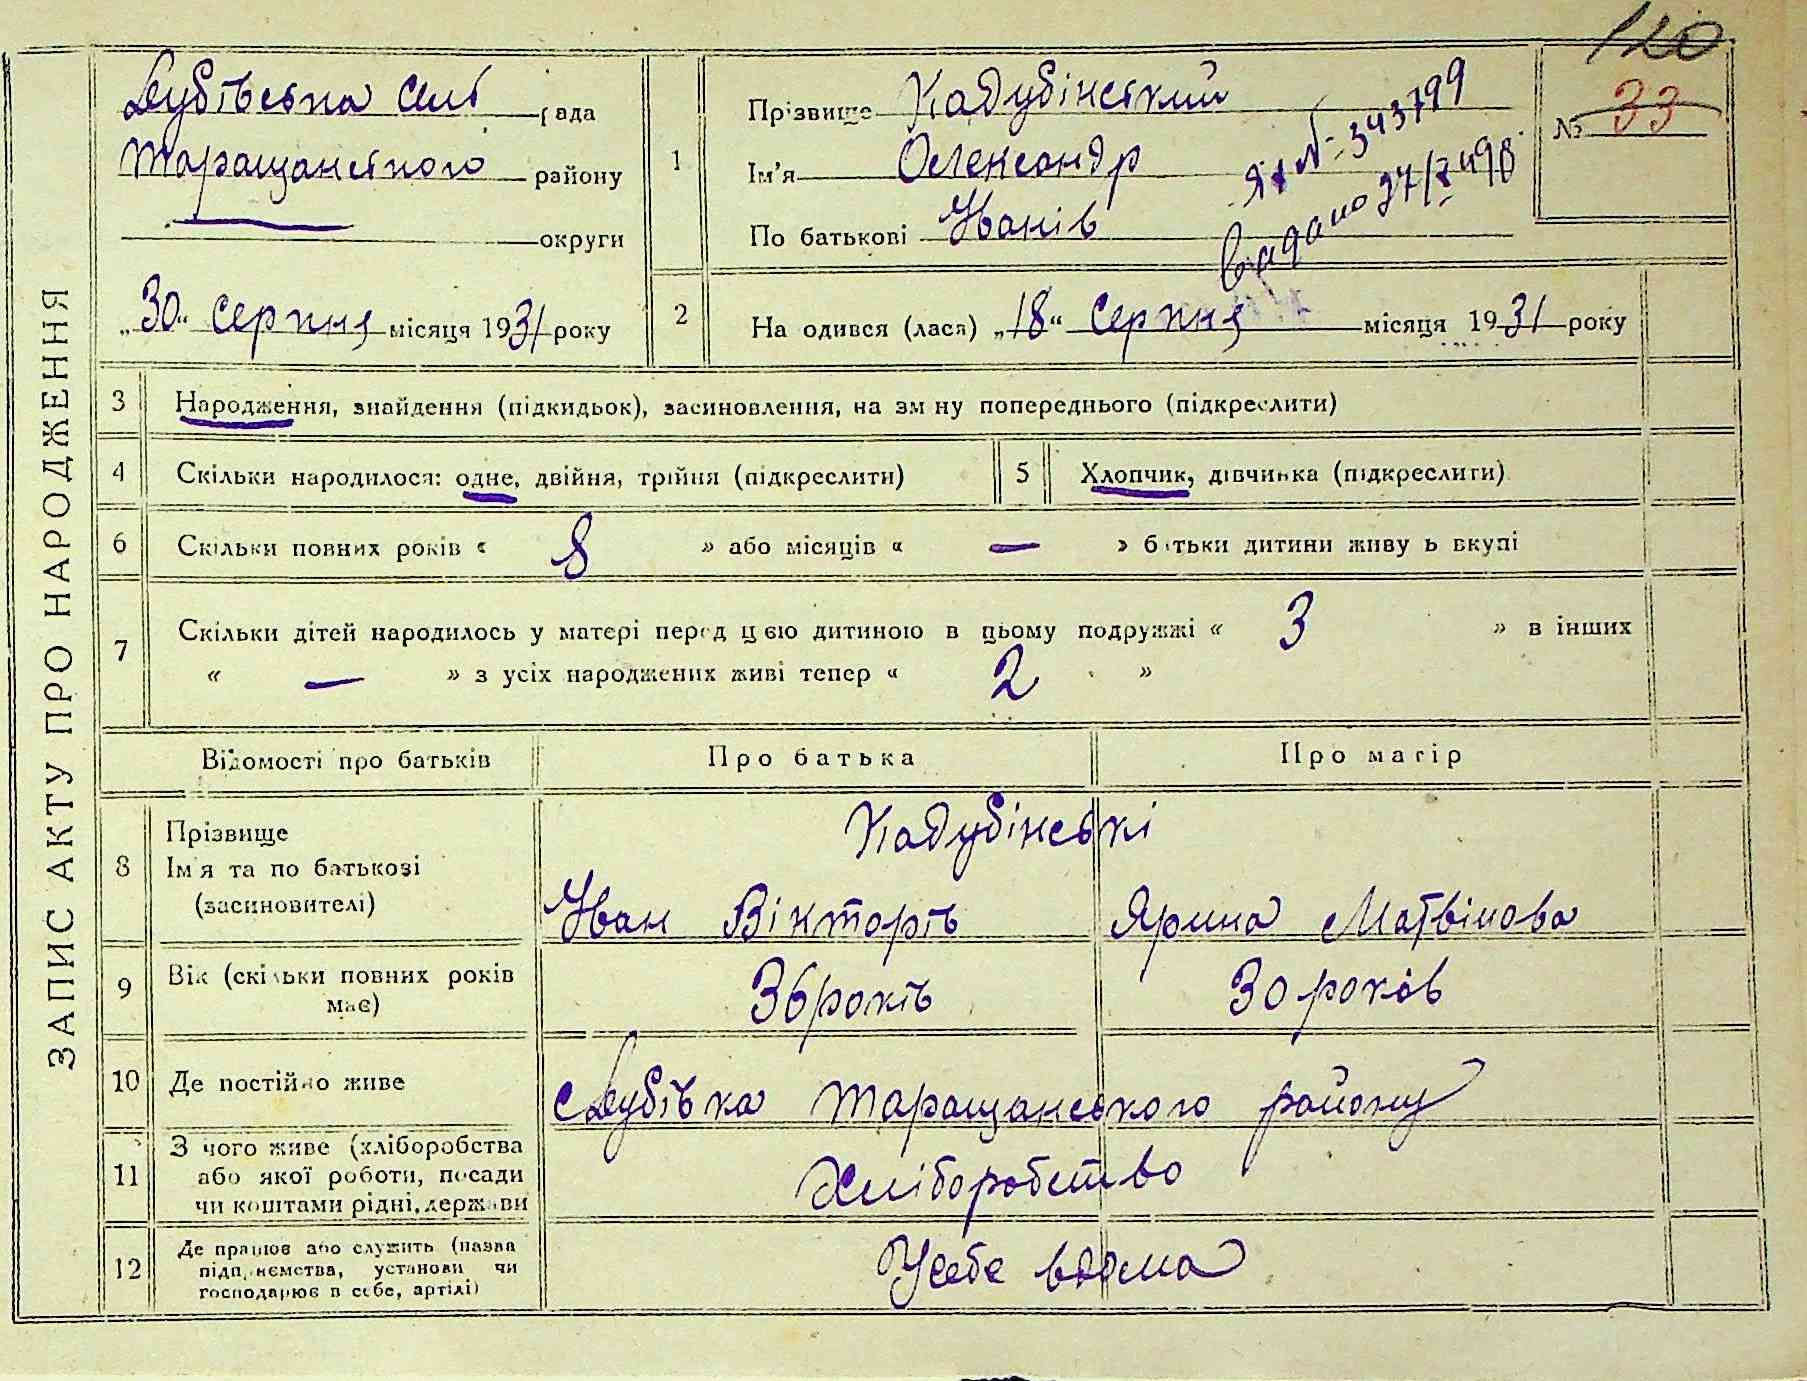 120
Дубівська сілб рада
Таращанського району
округи
„30“ серпня місяця 1931 року
ЗАПИС АКТУ ПРО НАРОДЖЕННЯ
1 Прізвище Кадубінський
Ім'я Олександр
По батькові Іванів
№ 33
ЯЛ № 343799
видано 27/X 49
2 На одився (лася) „18“ серпня місяця 1931 року
3 Народження, знайдення (підкидьок), засиновлення, на зм ну попереднього (підкреслити)
4 Скільки народилося: одне, двійня, трійня (підкреслити)
5 Хлопчик, дівчинка (підкреслити)
6 Скільки повних років « 8 » або місяців « — » батьки дитини живу ь вкупі
7 Скільки дітей народилось у матері перед цією дитиною в цьому подружжі « 3 » в інших
« — » з усіх народжених живі тепер « 2 »
Відомості про батьків Про батька Про матір
8 Прізвище
Ім'я та по батькові
(засиновителі)
Кадубінські
Іван Вікторів Ярина Матвійова
9 Вік (скільки повних років
має)
36 років 30 років
10 Де постійно живе с Дубівка Таращанського району
11 З чого живе (хліборобства
або якої роботи, посади
чи коштами рідні, держави
Хліборобство
12 Де працює або служить (назва
підприємства, установи чи
господарює в себе, артілі)
У себе вдома